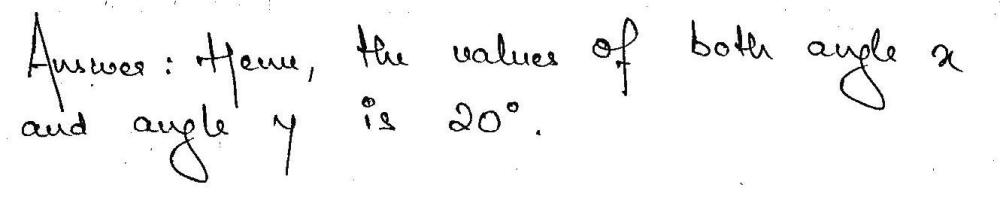 Answer: Hence, the values of both angle x
and angle y is 20°.